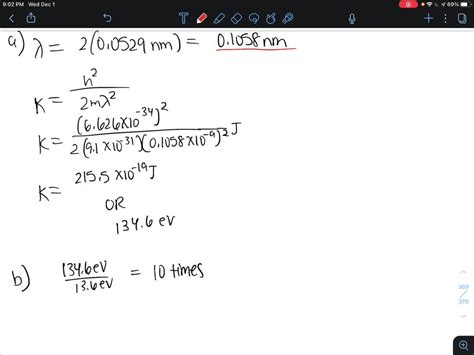 9:02 PM Wed Dec 1
69%
a) λ = 2(0.0529 nm) = 0.1058 nm
K = h² / 2mλ²
K = (6.626×10⁻³⁴)² / 2(9.1×10⁻³¹)(0.1058×10⁻⁹)² J
K = 215.5 ×10⁻¹⁹ J
OR
134.6 eV
b) 134.6eV / 13.6eV = 10 times
369
370